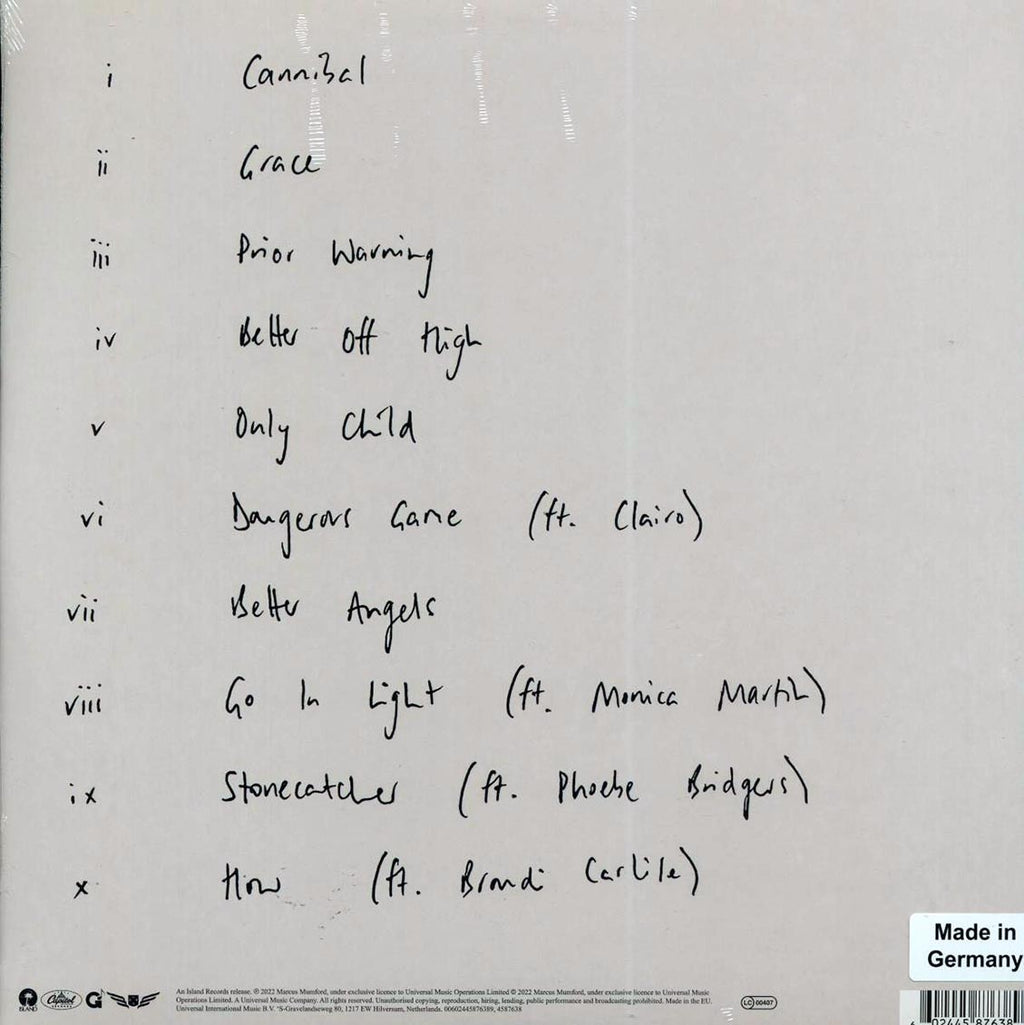 i Cannibal
ii Grace
iii Prior Warning
iv Better Off High
v Only Child
vi Dangerous Game (ft. Clairo)
vii Better Angels
viii Go In Light (ft. Monica Martin)
ix Stonecatcher (ft. Phoebe Bridgers)
x How (ft. Brandi Carlile)
Made in
Germany
ISLAND
Capitol
G
An Island Records release. ℗ 2022 Marcus Mumford, under exclusive licence to Universal Music Operations Limited © 2022 Marcus Mumford, under exclusive licence to Universal Music
Operations Limited. A Universal Music Company. All rights reserved. Unauthorised copying, reproduction, hiring, lending, public performance and broadcasting prohibited. Made in the EU.
Universal International Music B.V. 'S-Gravelandseweg 80, 1217 EW Hilversum, Netherlands. 00602445876389, 4587638
LC 00407
6 02445 87638